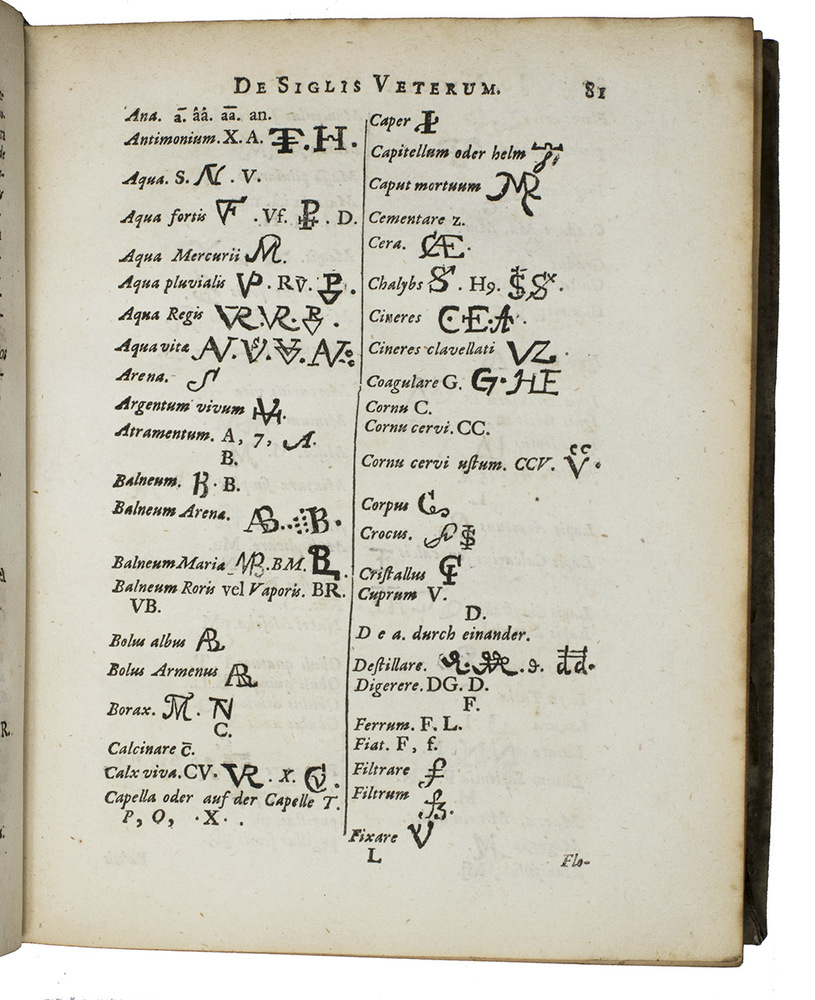 DE SIGLIS VETERUM. 81
Ana. a̅. ââ. a̅a̅. an.
Antimonium. X. A.
Aqua. S. . V.
Aqua fortis . Vf. . D.
Aqua Mercurii
Aqua pluvialis . Rv̅.
Aqua Regis
Aqua vitæ
Arena.
Argentum vivum
Atramentum. A, 7,
B.
Balneum. . B.
Balneum Arenæ.
Balneum Mariæ . BM.
Balneum Roris vel Vaporis. BR.
VB.
Bolus albus
Bolus Armenus
Borax.
C.
Calcinare c̅.
Calx viva. CV. . X.
Capella oder auf der Capelle T.
P, O, . X. .
Caper
Capitellum oder helm
Caput mortuum
Cementare z.
Cera.
Chalybs . H9.
Cineres
Cineres clavellati
Coagulare G.
Cornu C.
Cornu cervi. CC.
Cornu cervi ustum. CCV.
Corpus
Crocus.
Cristallus
Cuprum V.
D.
D e a. durch einander.
Destillare.
Digerere. DG. D.
F.
Ferrum. F. L.
Fiat. F, f.
Filtrare
Filtrum
Fixare
L
Flo-